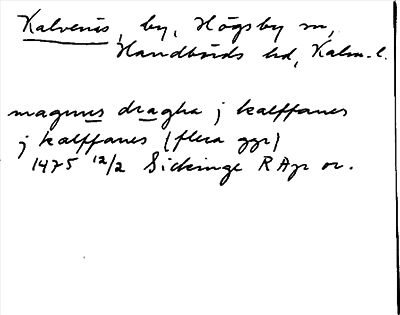 Kalvenäs, by, Högsby sn,
Handbörds hd, Kalm. l.
magnus dragha j kalffanes
j kalffanes (flera ggr)
1475 12/2 Sickinge RApr or.